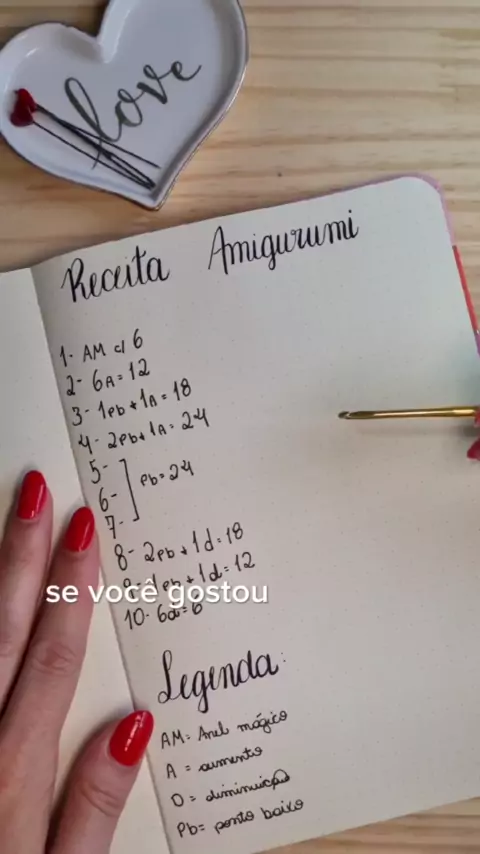 love
Receita Amigurumi
1- AM c/ 6
2- 6A = 12
3- 1pb + 1A = 18
4- 2pb + 1A = 24
5-
6- pb = 24
7-
8- 2pb + 1d = 18
9- 1pb + 1d = 12
se você gostou
10- 6d = 6
Legenda:
AM = Anel mágico
A = aumento
D = diminuição
Pb = ponto baixo